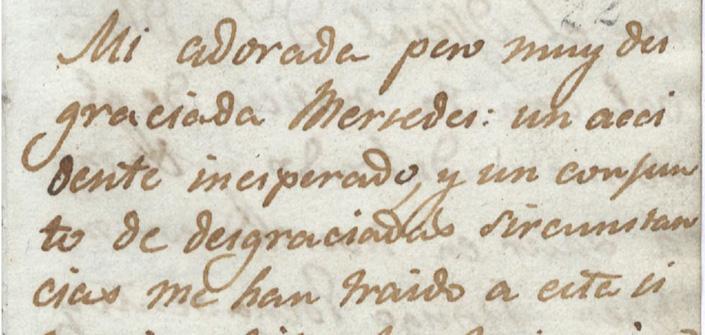 Mi adorada pero muy des
graciada Mersedes: un acci
dente inesperado, y un conjun
to de desgraciadas sircunstan
cias me han traido a este si